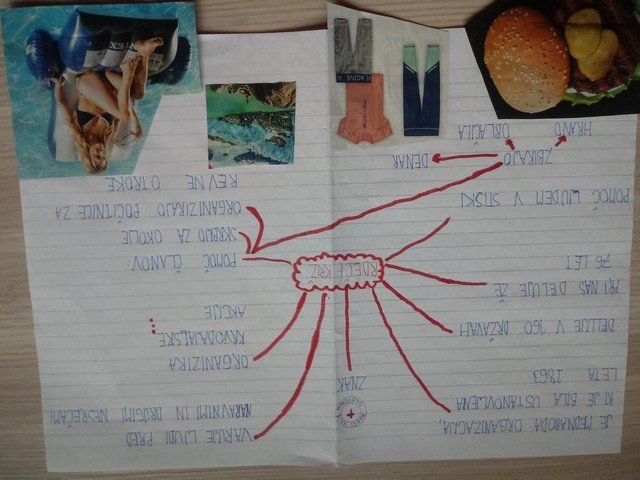 JE MEDNARODA ORGANIZACIJA,
KI JE BILA USTANOVLJENA
LETA 1863
DELUJE V 160 DRŽAVAH
PRI NAS DELUJE ŽE
76 LET
POMOČ LJUDEM V STISKI
ZNAK
VARUJE LJUDI PRED
NARAVNIMI IN DRUGIMI NESREČAMI
ORGANIZIRA
KRVODAJALSKE
AKCIJE
RDEČI KRIŽ
POMOČ ČLANOV:
SKRBIJO ZA OKOLJE
ORGANIZIRAJO POČITNICE ZA
REVNE OTROKE
ZBIRAJO
DENAR
OBLAČILA
HRANO
INTEX